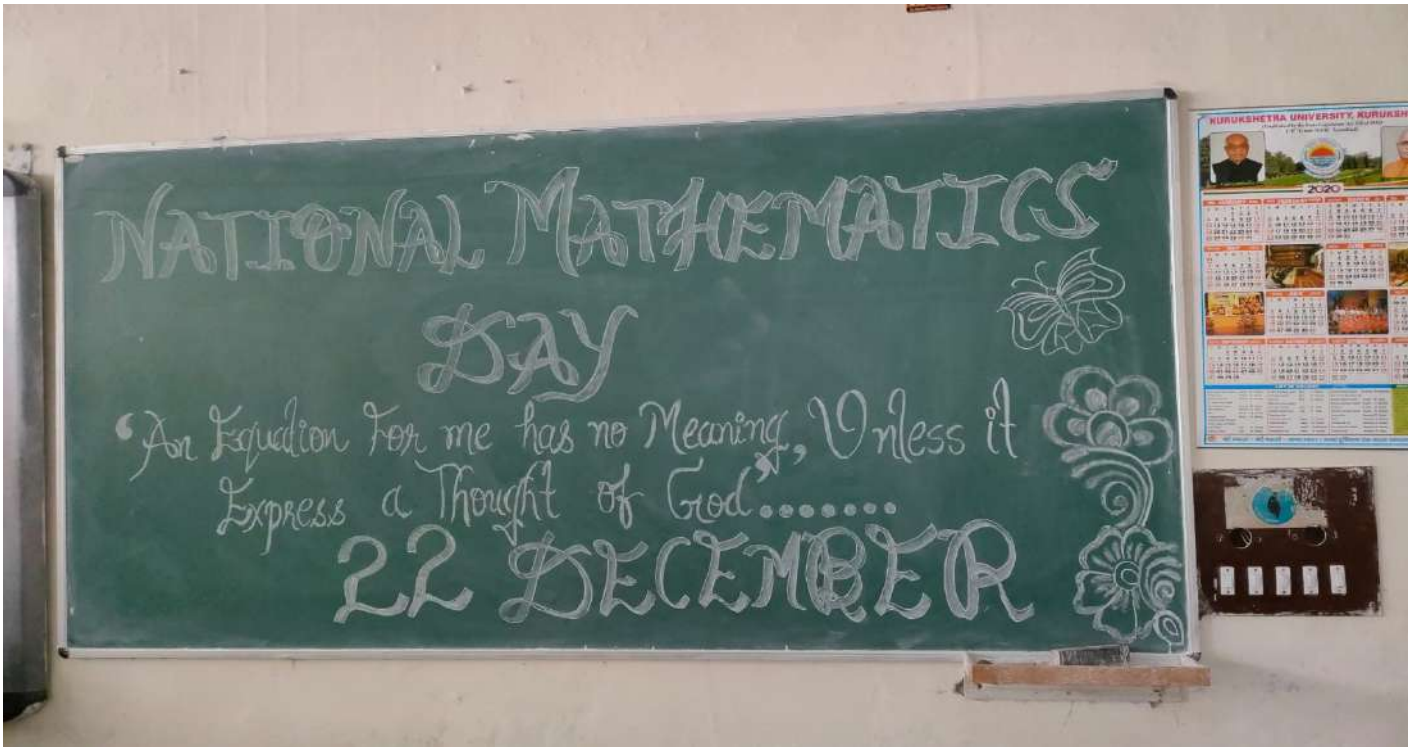 NATIONAL MATHEMATICS
DAY
‘An Equation For me has no Meaning, Unless it
Express a Thought of God’.......
22 DECEMBER
KURUKSHETRA UNIVERSITY, KURUKSH
2020